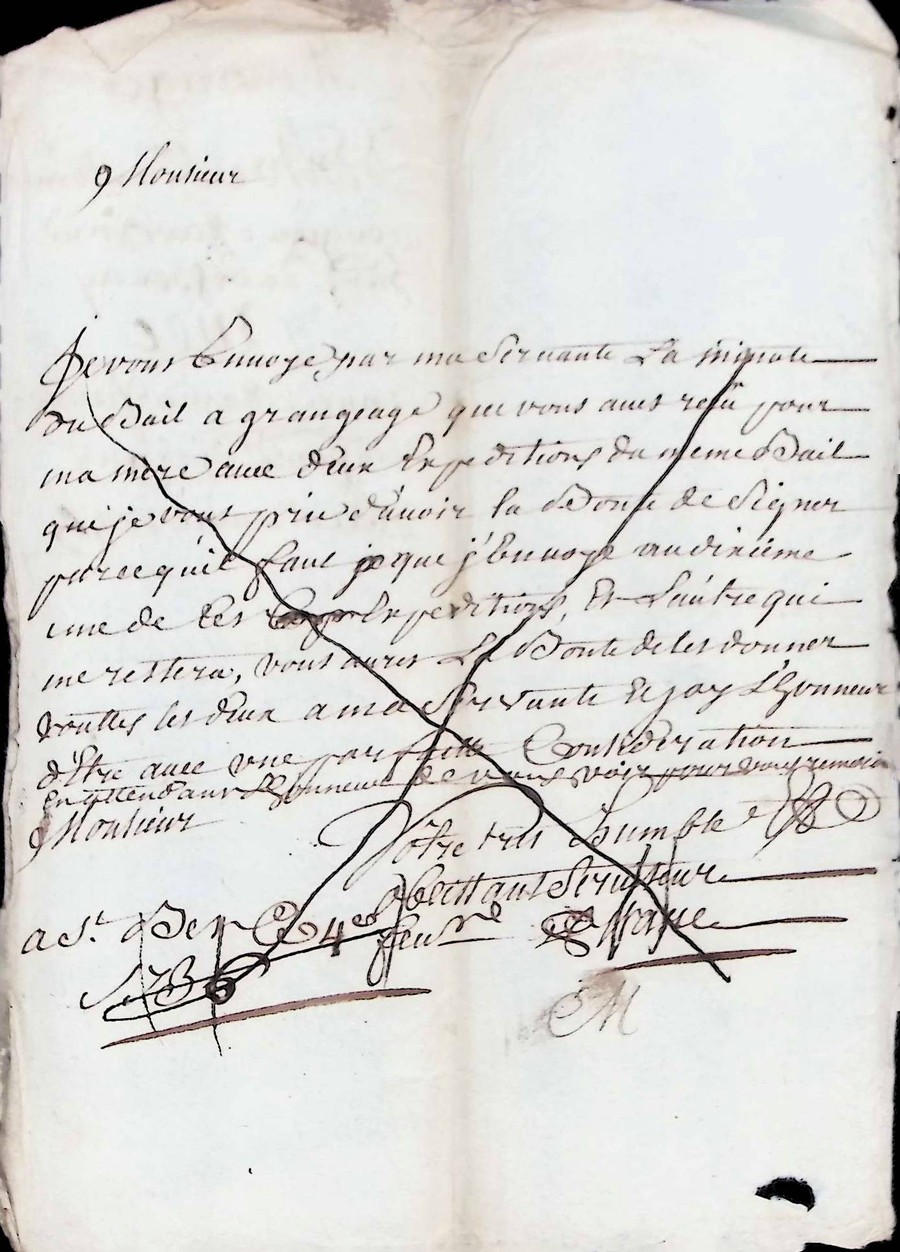 Monsieur
Je vous Envoye par ma Servante La minute
du Bail a grangeage que vous aves resu pour
ma mère avec deux Expeditions du meme Bail
que je vous prie d'avoir la Bonté de Signer
parcequ'il faut que j'Envoye au dixième
une de ces Expeditions, Et L'autre qui
me restera, vous aures La Bonté de les donner
touttes les deux a ma Servante Et jay L'honneur
d'Etre avec une parfaitte Consideration
En attendant L'honneur de vous voir pour vous remercier
Monsieur
Votre tres humble &
obeissant Serviteur
a St. 4 feu
173